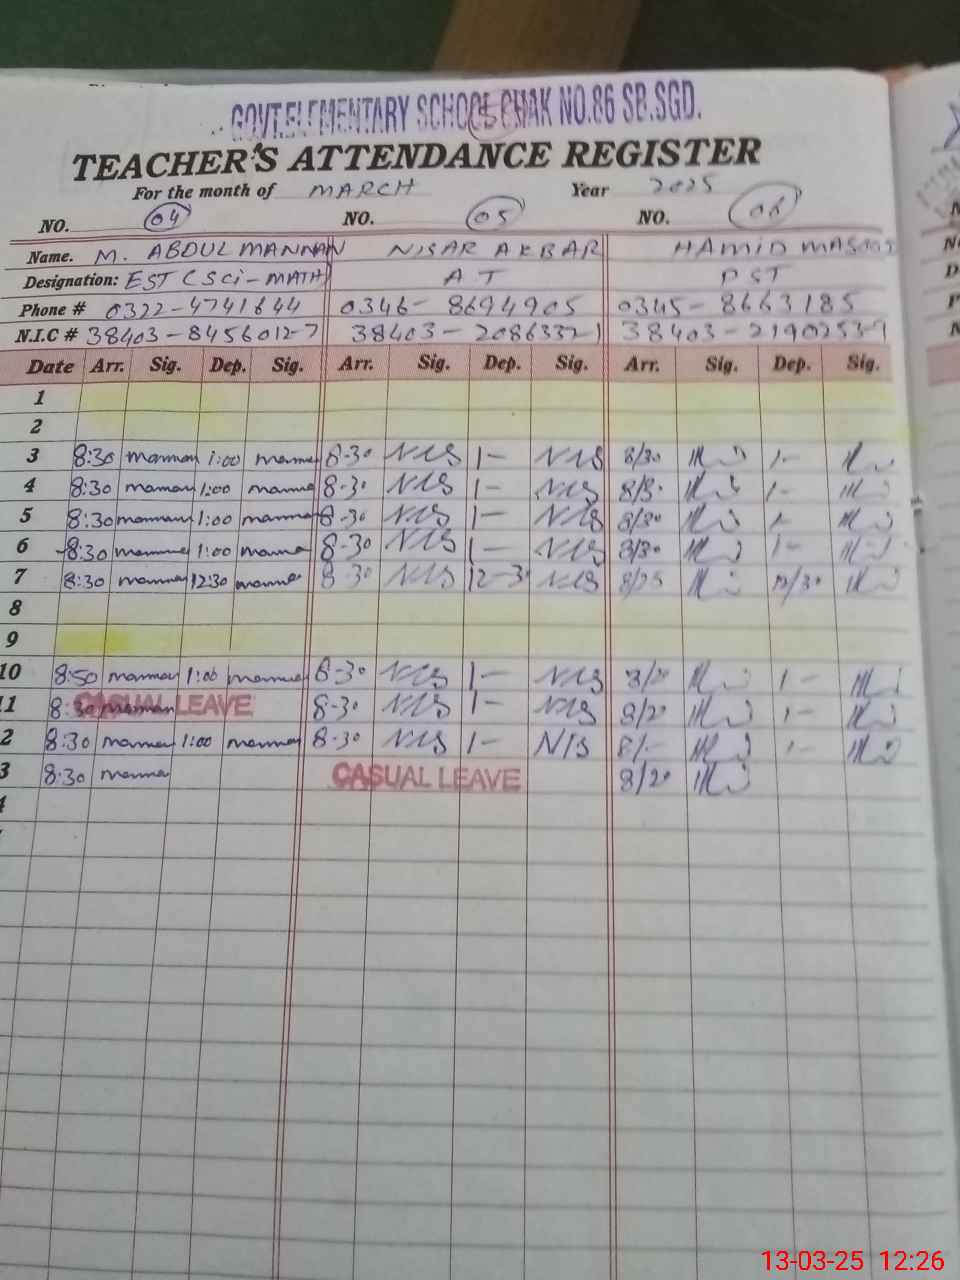 GOVT.ELEMENTARY SCHOOL CHAK NO.86 SB.SGD.
TEACHER'S ATTENDANCE REGISTER
For the month of MARCH Year 2025
NO. 04 NO. 05 NO. 06
Name. M. ABDUL MANNAN NISAR AKBAR HAMID MASOOD
Designation: EST (SCi-MATH) AT PST
Phone # 0322-4741644 0346-8694905 0345-8663185
N.I.C # 38403-8456012-7 38403-2086332-1 38403-2190253-9
Date Arr. Sig. Dep. Sig. Arr. Sig. Dep. Sig. Arr. Sig. Dep. Sig.
1
2
3 8:30 mannan 1:00 manna 8-30 NIS 1- NIS 8/30 1-
4 8:30 mannan 1:00 manna 8-30 NIS 1- NIS 8/30 1-
5 8:30 mannan 1:00 manna 8-30 NIS 1- NIS 8/30 1-
6 8:30 manna 1:00 manna 8-30 NIS 1- NIS 8/30 1-
7 8:30 manna 12:30 manna 8-30 NIS 12-30 NIS 8/25 12/30
8
9
10 8:50 mannan 1:00 mannan 8-30 NIS 1- NIS 8/20 1-
11 8:30 mannan CASUAL LEAVE 8-30 NIS 1- NIS 8/20 1-
2 8:30 mannan 1:00 mannan 8-30 NIS 1- NIS 8/- 1-
3 8:30 manna CASUAL LEAVE 8/20
13-03-25 12:26